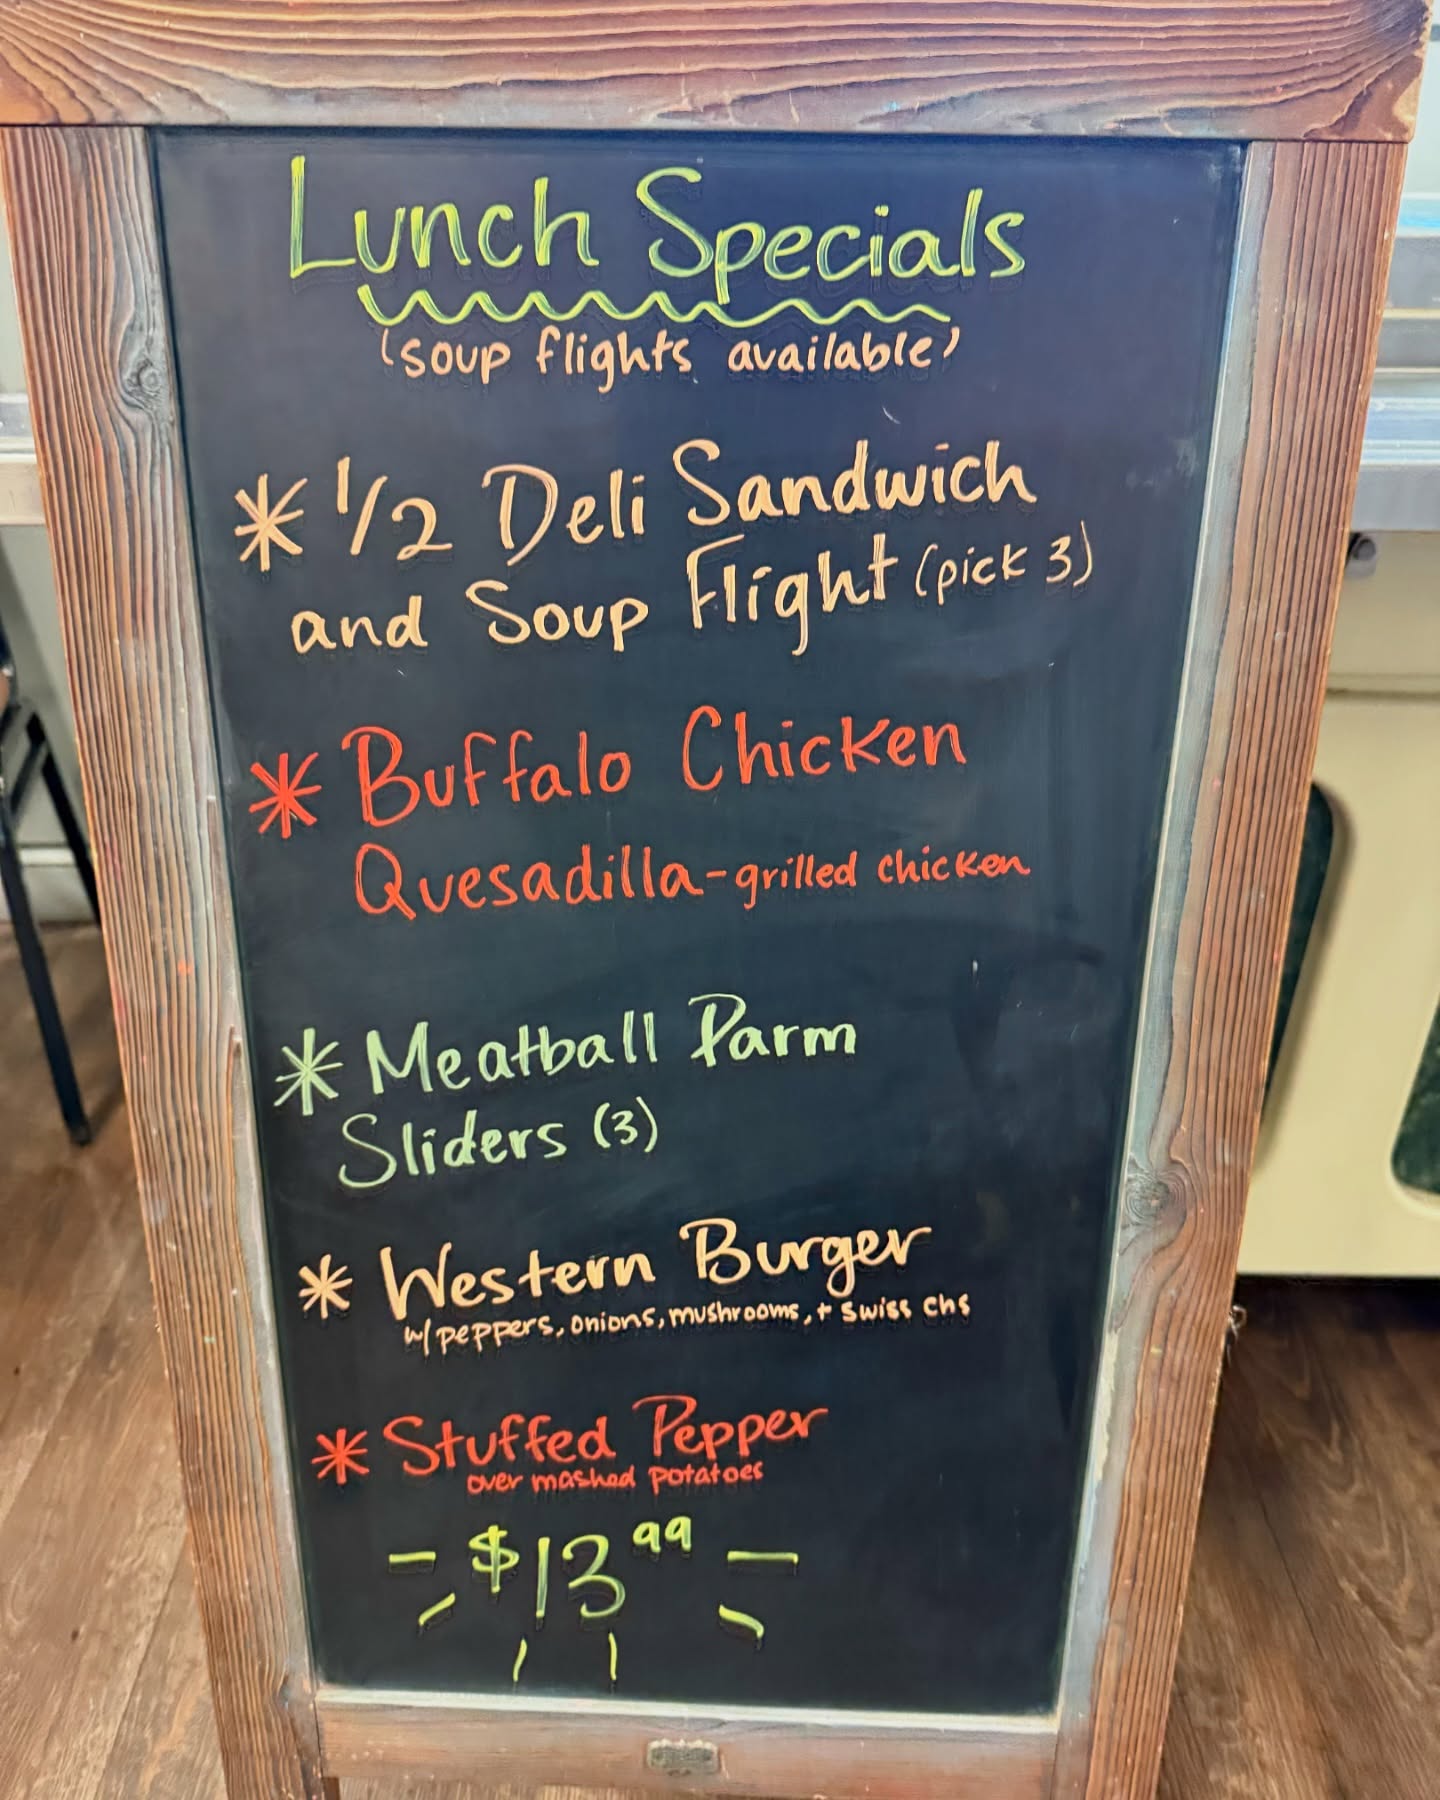 Lunch Specials
(soup flights available)
* 1/2 Deli Sandwich
and Soup Flight (pick 3)
* Buffalo Chicken
Quesadilla - grilled chicken
* Meatball Parm
Sliders (3)
* Western Burger
w/ peppers, onions, mushrooms, + swiss chs
* Stuffed Pepper
over mashed potatoes
$13.99